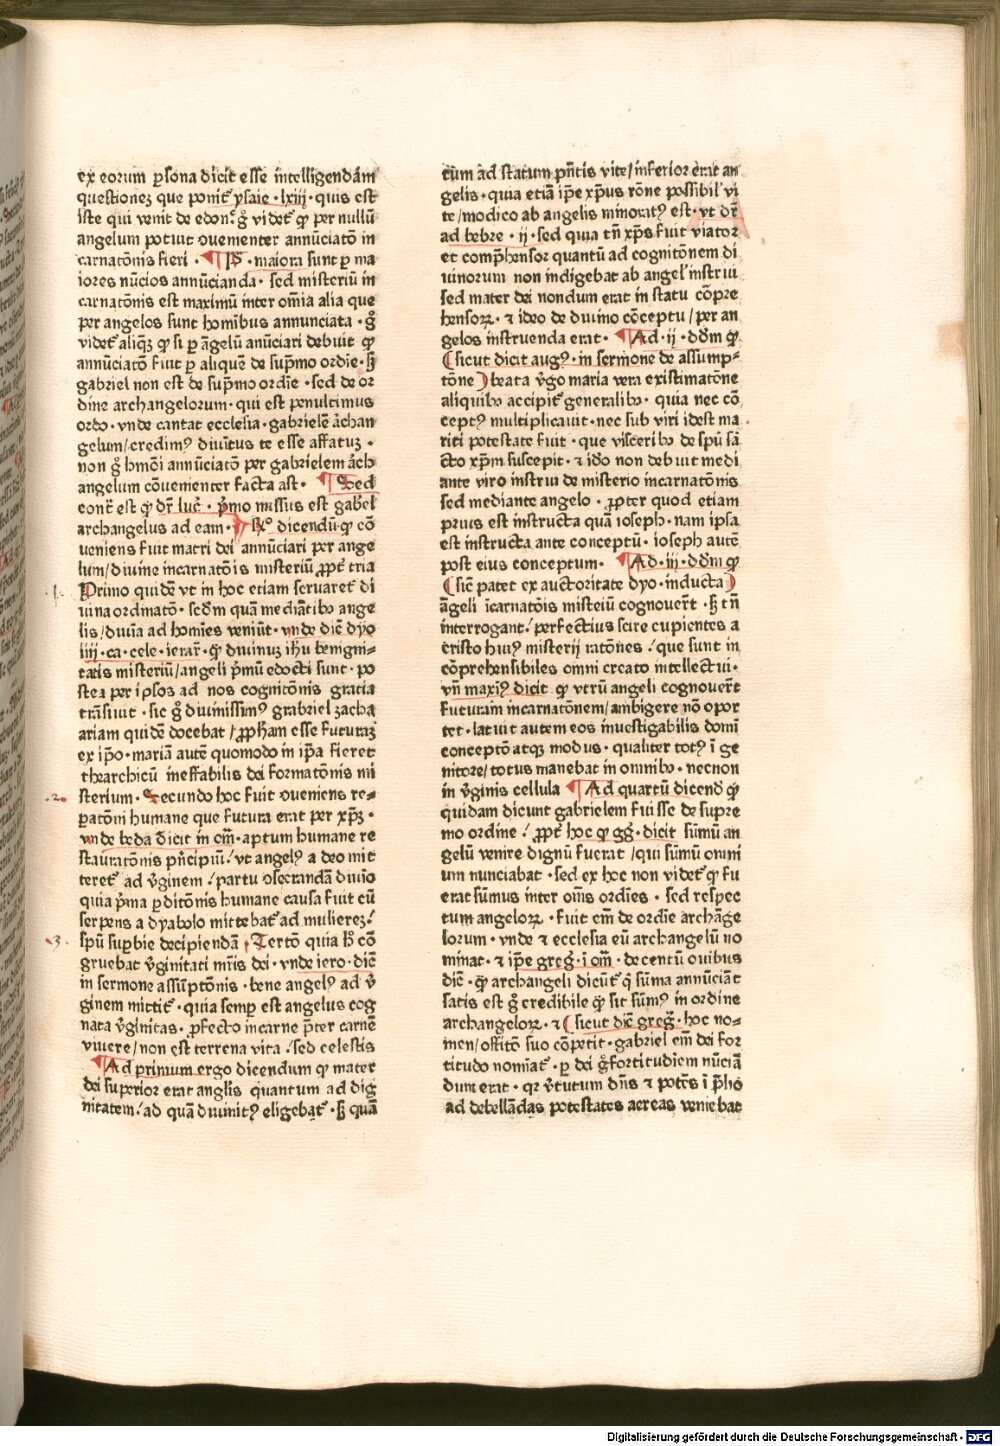 ex eorum ꝑsona dicit esse intelligendam
questionez que ponit᷑ ysaie · lxiij · quis est
iste qui venit de edon · gͦ videt᷑ ꝙ per nullū
angelum potuit ꝯuenienter annūciatō in
carnatōnis fieri · ¶ P̄ · maiora sunt ꝑ ma
iores nūcios annūcianda · sed misteriū in
carnatōnis est maximū inter om̄ia alia que
per angelos sunt homībus annunciata · gͦ
videt᷑ aliqꝫ ꝙ si ꝑ āgelū anūciari debuit ꝙ
annūciatō fiut ꝑ aliquē de sup̄mo ordīe · sꝫ
gabriel non est de sup̄mo ordīe · sed de or
dine archangelorum · qui est penultimus
ordo · vnde cantat ecclesia · gabrielē archan
gelum / credimꝰ diuītus te esse affatuz ·
non gͦ hmōi annūciatō per gabrielem arch
angelum cōuenienter facta ast · ¶ Sed
contͬ est ꝙ dr̄ luc̄ · p̄mo missus est gabr̄el
archangelus ad eam · ¶ Rͦ dicendū · ꝙ cō
ueniens fuit matri dei annūciari per ange
lum / diuine incarnatōis misteriū ꝓpt̄ tria
· 1 · Primo quidē vt in hoc etiam seruaret᷑ di
uina ordinatō · scd̄m quā mediātibꝰ ange
lis / diuīa ad homīes veniūt · vnde dic̄ dyo
iiij · ca · cele · ierar̄ · ꝙ diuinuz ihū benigni-
tatis misteriū / angeli p̄mū edocti sunt · po
stea per ipsos ad nos cognitōnis gratia
trāsiuit · sic gͦ diuinissimꝰ grabriel zacha
ariam quidē docebat / ꝓph̄am esse futuruz
ex ip̄o · mariā autē quomodo in ip̄a fieret
thearchicū ineffabilis dei formatōnis mi
· 2 · sterium · Secundo hoc fuit ꝯueniens re-
ꝑatōni humane que futura erat per xp̄z ·
vnde beda dicit in om̄ · aptum humane re
stauratōnis pn̄cipiū / vt angelꝰ a deo mit
teret᷑ ad v̄ginem / partu ꝯsecrandā diuīo
quia p̄ma ꝑditōnis humane causa fuit cū
serpens a dyabolo mittebat᷑ ad mulierez /
· 3 · spū suꝑbie decipiendā · Tertō quia hͦ cō
gruebat v̄ginitati mr̄is dei · vnde iero · dic̄
in sermone assūptōnis · bene angelꝰ ad v̄
ginem mittit᷑ · quia semꝑ est angelus cog
nata v̄ginitas · ꝓfecto in carne pret̄ carnē
viuere / non est terrena vita / sed celestis
¶ Ad primum ergo dicendum ꝙ mater
dei superior erat anglis quantum ad dig
nitatem / ad quā diuinitꝰ eligebat᷑ · sꝫ quā
tum ad statum pn̄tis vite / inferior erat an
gelis · quia etiā ip̄e xp̄us rōne possibil̄ vi
te / modico ab angelis minoratꝰ est · vt dr̄
ad hebre · ij · sed quia tn̄ xp̄s fuit viator
et comp̄hensor quantū ad cognitōnem di
uinorum non indigebat ab angel̄ instrui
sed mater dei nondum erat in statu cōpre
hensoꝝ · ⁊ ideo de diuino cōceptu / per an
gelos instruenda erat · ¶ Ad · ij · dd̄m ꝙ
( sicut dicit augꝰ · in sermone de assump-
tōne ) beata v̄go maria vera existimatōne
aliquibꝰ accipit᷑ generalibꝰ · quia nec cō
ceptꝰ multiplicauit · nec sub viri idest ma
riti potestate fuit · que visceribꝰ de spū sā
cto xp̄m suscepit · ⁊ iđo non debuit medi
ante viro instrui de misterio incarnatōnis
sed mediante angelo · ꝓpter quod etiam
prius est instructa quā ioseph · nam ipsa
est instructa ante conceptū · ioseph autē
post eius conceptum · ¶ Ad · iij · dd̄m ꝙ
( sic̄ patet ex auctoritate dyo · inducta )
āgeli īcarnatōis misteiū cognouer̄t · sꝫ tn̄
interrogant / perfectius scire cupientes a
cristo huiꝰ misterij ratōnes / que sunt in
cōprehensibiles omni creato intellectui ·
vn̄ maxiꝰ dicit ꝙ vtrū angeli cognouer̄t
futuram incarnatōnem / ambigere nō opor
tet · latuit autem eos inuestigabilis domī
conceptō atqꝫ modus · qualiter totꝰ ī ge
nitore / totus manebat in omnibꝰ · necnon
in v̄ginis cellula ¶ Ad quartū dicend̄ ꝙ
quidam dicunt gabrielem fuisse de supre
mo ordine / ꝓpt̄ hoc ꝙ gg̊ · dicit sūmū an
gelū venire dignū fuerat / qui sūmū omni
um nunciabat · sed ex hoc non videt᷑ ꝙ fu
erat sūmus inter om̄s ordīes · sed respec
tum angeloꝝ · fuit em̄ de ordīe archāge
lorum · vnde ⁊ ecclesia eū archangelū no
minat · ⁊ ip̄e greg̊ · ī om̄ · de centū ouibus
dic̄ · ꝙ archangeli dicūt᷑ ꝗ sūma annūciāt
satis est gͦ credibile ꝙ sit sūmꝰ in ordine
archangeloꝝ · ⁊ ( sicut dic̄ greg̊ · hoc no-
men / offitō suo cōpetit · gabriel em̄ dei for
titudo nomīat᷑ · ꝑ dei gͦ fortitudiem nūciā
dum erat · ꝙ v̄tutum dn̄s ⁊ potēs ī p̄lio
ad debellādas potestates aereas veniebat
Digitalisierung gefördert durch die Deutsche Forschungsgemeinschaft - DFG